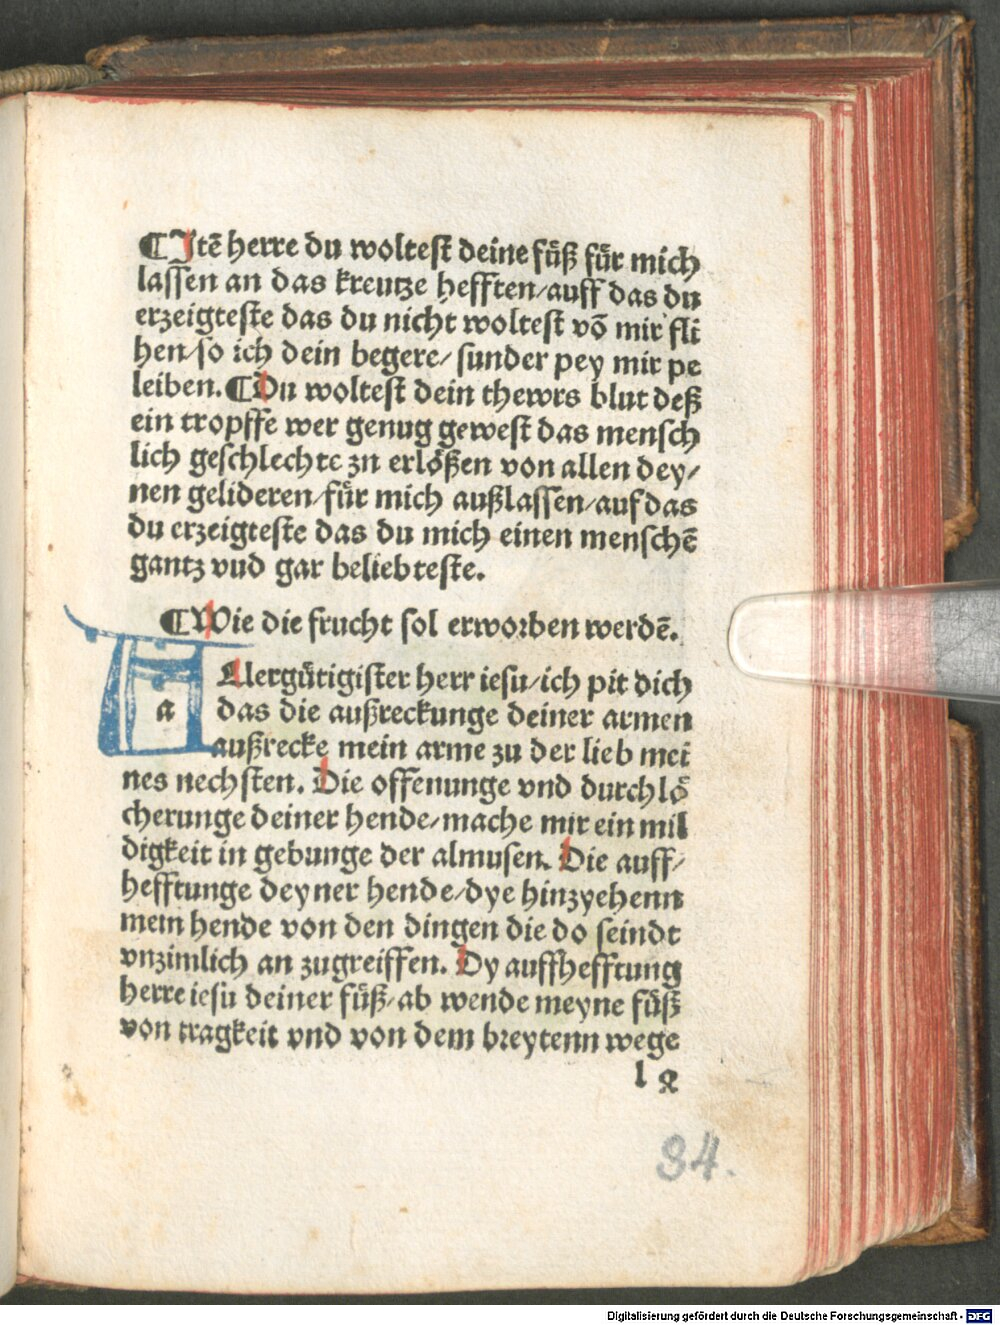 ¶Jtē herre du woltest deine fuͤß fuͤr mich
lassen an das kreutze hefften/auff das du
erzeigteste das du nicht woltest võ mir fli
hen/so ich dein begere/sunder pey mir pe
leiben.¶Du woltest dein thewrs blut deß
ein tropffe wer genug gewest das mensch
lich geschlechte zu erloͤßen von allen dey/
nen gelideren/fuͤr mich außlassen/auf das
du erzeigteste das du mich einen menschē
gantz vnd gar beliebteste.
¶Wie die frucht sol erworben werdē.
a Allerguͤtigister herr iesu/ich pit dich
das die außreckunge deiner armen
außrecke mein arme zu der lieb mei
nes nechsten. Die offenunge vnd durchloͤ
cherunge deiner hende/mache mir ein mil
digkeit in gebunge der almusen. Die auff/
hefftunge deyner hende/dye hinzyehenn
mein hende von den dingen die do seindt
vnzimlich an zugreiffen. Dy auffhefftung
herre iesu deiner fuͤß/ab wende meyne fuͤß
von tragkeit vnd von dem breytenn wege
l 2
84.
Digitalisierung gefördert durch die Deutsche Forschungsgemeinschaft - DFG